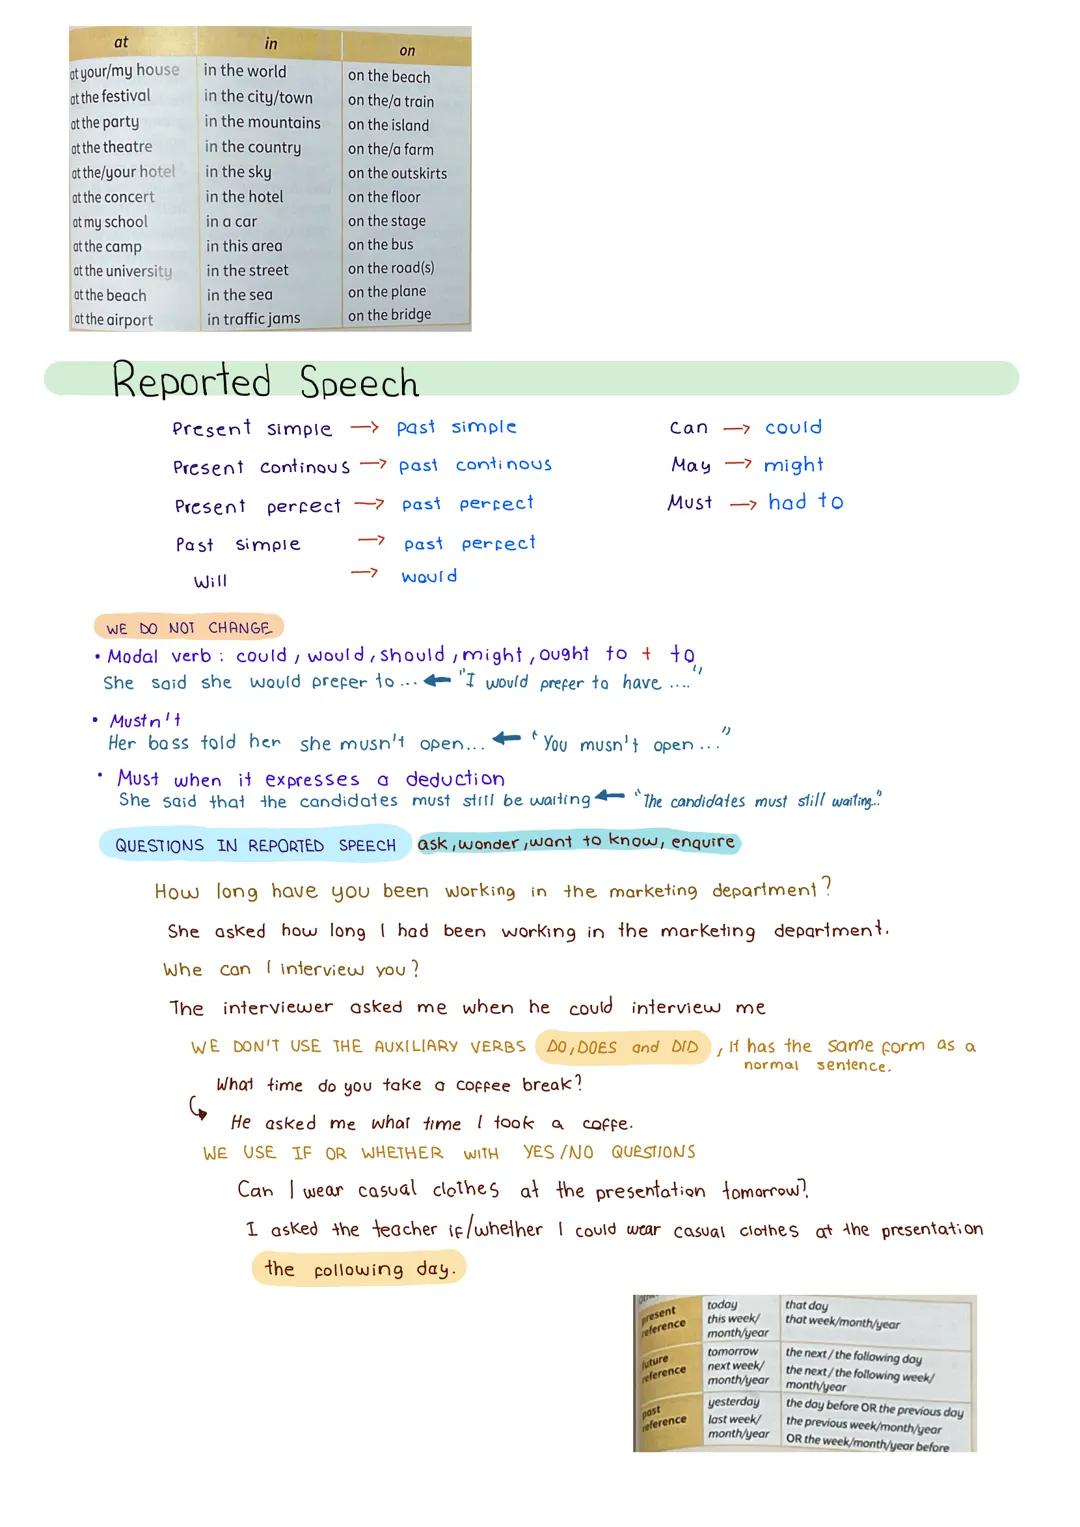 at in on
at your/my house in the world on the beach
at the festival in the city/town on the/a train
at the party in the mountains on the island
at the theatre in the country on the/a farm
at the/your hotel in the sky on the outskirts
at the concert in the hotel on the floor
at my school in a car on the stage
at the camp in this area on the bus
at the university in the street on the road(s)
at the beach in the sea on the plane
at the airport in traffic jams on the bridge
Reported Speech
Present simple → past simple Can → could
Present continous → past continous May → might
Present perfect → past perfect Must → had to
Past simple → past perfect
Will → would
WE DO NOT CHANGE
• Modal verb : could, would, should, might, ought to + to
She said she would prefer to ... ← "I would prefer to have ...."
• Mustn't
Her boss told her she musn't open... ← "You musn't open ..."
• Must when it expresses a deduction
She said that the candidates must still be waiting ← "The candidates must still waiting..."
QUESTIONS IN REPORTED SPEECH ask, wonder, want to know, enquire
How long have you been working in the marketing department?
She asked how long I had been working in the marketing department.
Whe can I interview you?
The interviewer asked me when he could interview me
WE DON'T USE THE AUXILIARY VERBS DO, DOES and DID, It has the same form as a
normal sentence.
What time do you take a coffee break?
He asked me what time I took a coffe.
WE USE IF OR WHETHER WITH YES/NO QUESTIONS
Can I wear casual clothes at the presentation tomorrow?
I asked the teacher if/whether I could wear casual clothes at the presentation
the following day.
present reference today that day
this week/ that week/month/year
month/year
future reference tomorrow the next / the following day
next week/ the next / the following week/
month/year month/year
past reference yesterday the day before OR the previous day
last week/ the previous week/month/year
month/year OR the week/month/year before